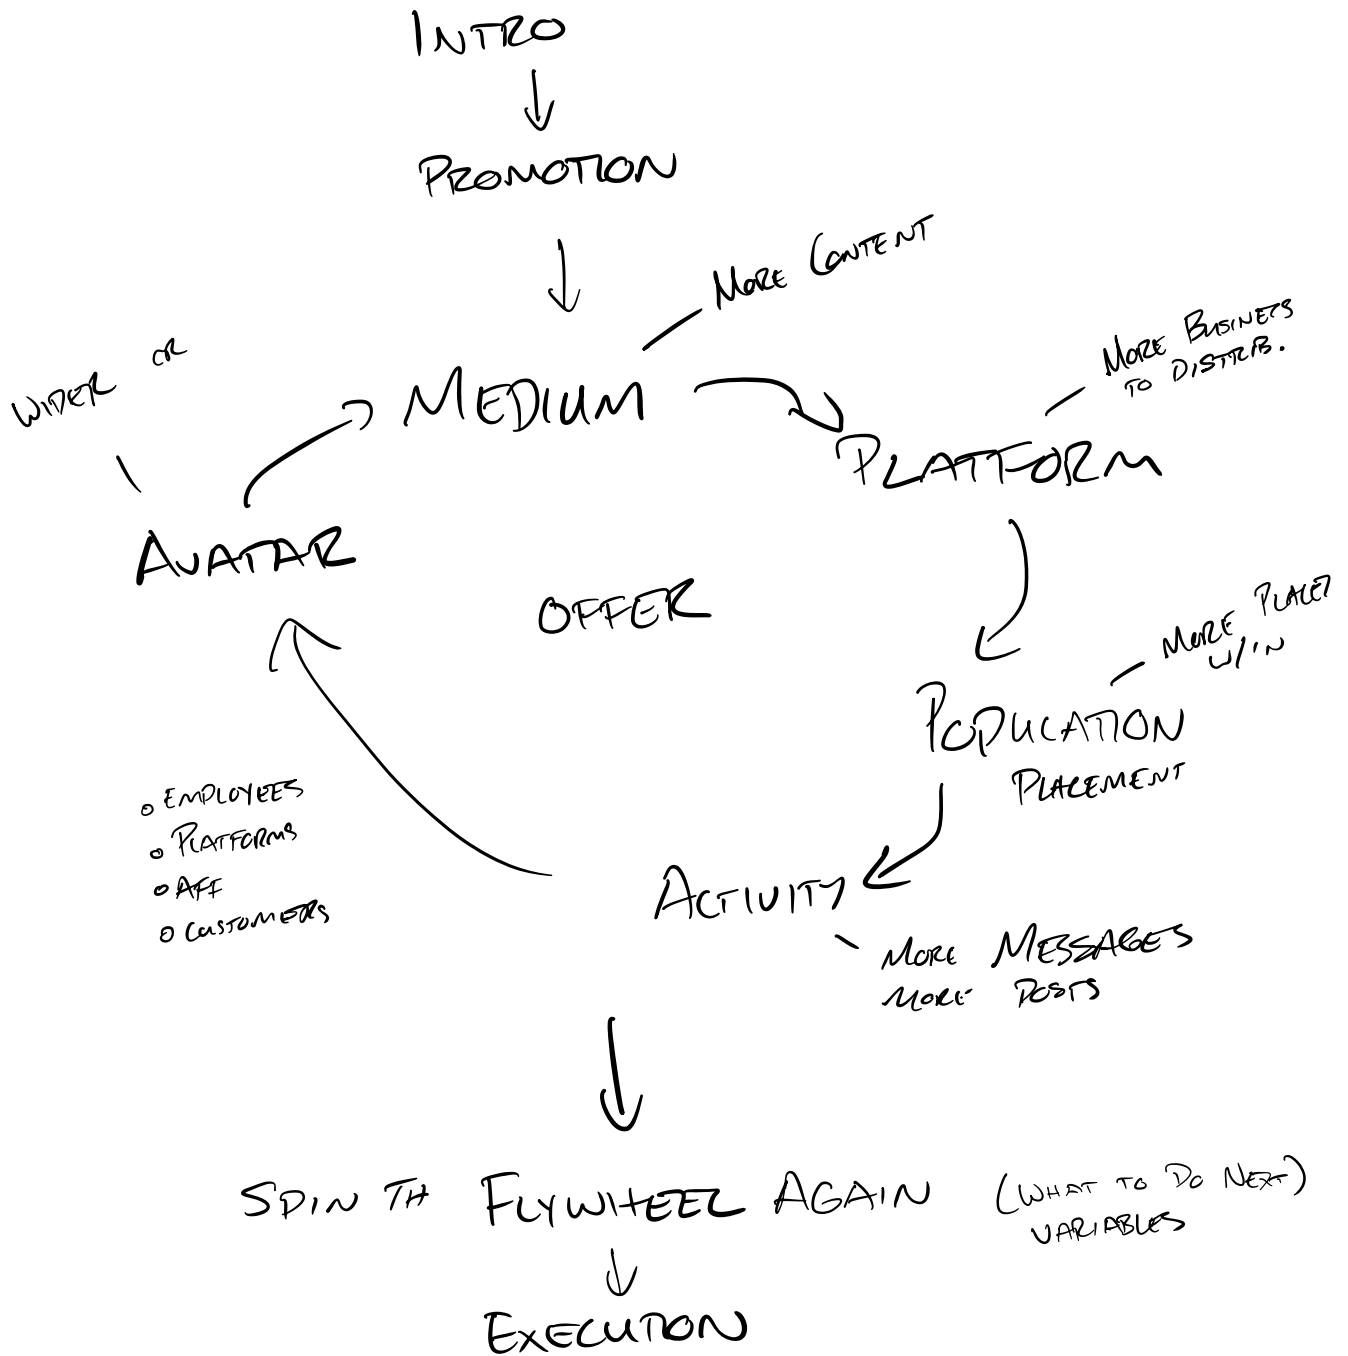 INTRO
PROMOTION
MORE CONTENT
MORE BUSINESS
TO DISTRIB.
WIDER OR
MEDIUM
PLATFORM
AVATAR
OFFER
MORE PLACES
W/IN
PLACEMENT
EMPLOYEES
PLATFORMS
AFF
CUSTOMERS
ACTIVITY
MORE MESSAGES
MORE POSTS
SPIN TH FLYWHEEL AGAIN (WHAT TO DO NEXT)
VARIABLES
EXECUTION